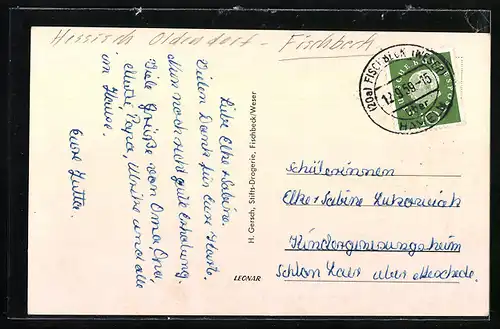 Hessisch Oldendorf - Fischbeck
Liebe Elke + Sabine.
Vielen Dank für Eure Karte.
Nun noch recht gute Erholung.
Viele Grüße von Oma, Opa,
Mutti, Papa, Ulrike und alle
im Hause.
Eure Jutta.
H. Gersch, Stifts-Drogerie, Fischbeck/Weser
LEONAR
(20a) FISCHBECK (WESER)
12.9.59-15
über
HAMELN
10
Schülerinnen
Elke + Sabine
Kindergenesungsheim
Schloss Laer über Meschede.